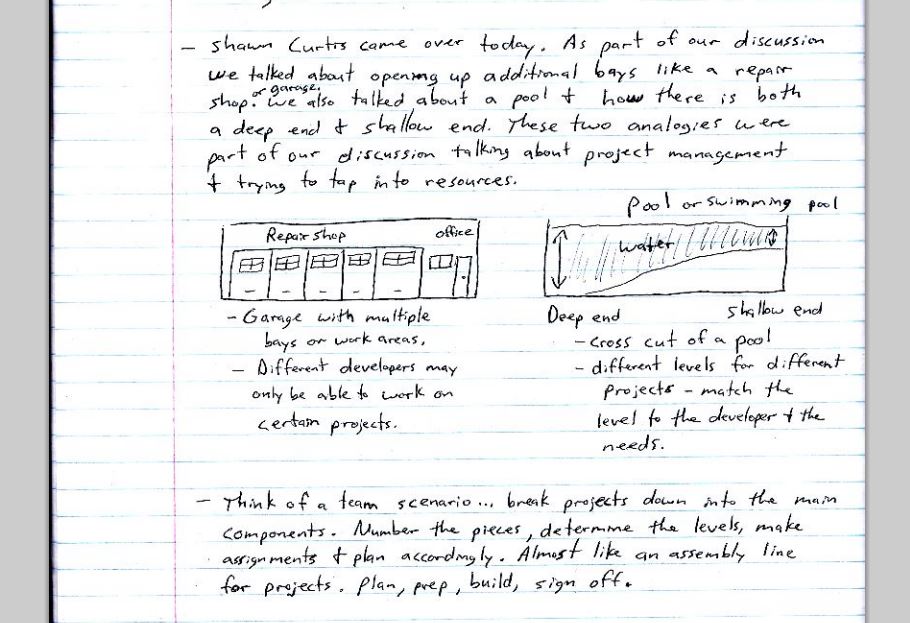 - Shawn Curtis came over today. As part of our discussion
we talked about opening up additional bays like a repair
or garage.
shop. We also talked about a pool & how there is both
a deep end & shallow end. These two analogies were
part of our discussion talking about project management
& trying to tap into resources.
Pool or swimming pool
Repair shop office
water
Deep end shallow end
- Garage with multiple
bays or work areas.
- Different developers may
only be able to work on
certain projects.
- cross cut of a pool
- different levels for different
projects - match the
level to the developer & the
needs.
- Think of a team scenario... break projects down into the main
components. Number the pieces, determine the levels, make
assignments & plan accordingly. Almost like an assembly line
for projects. Plan, prep, build, sign off.